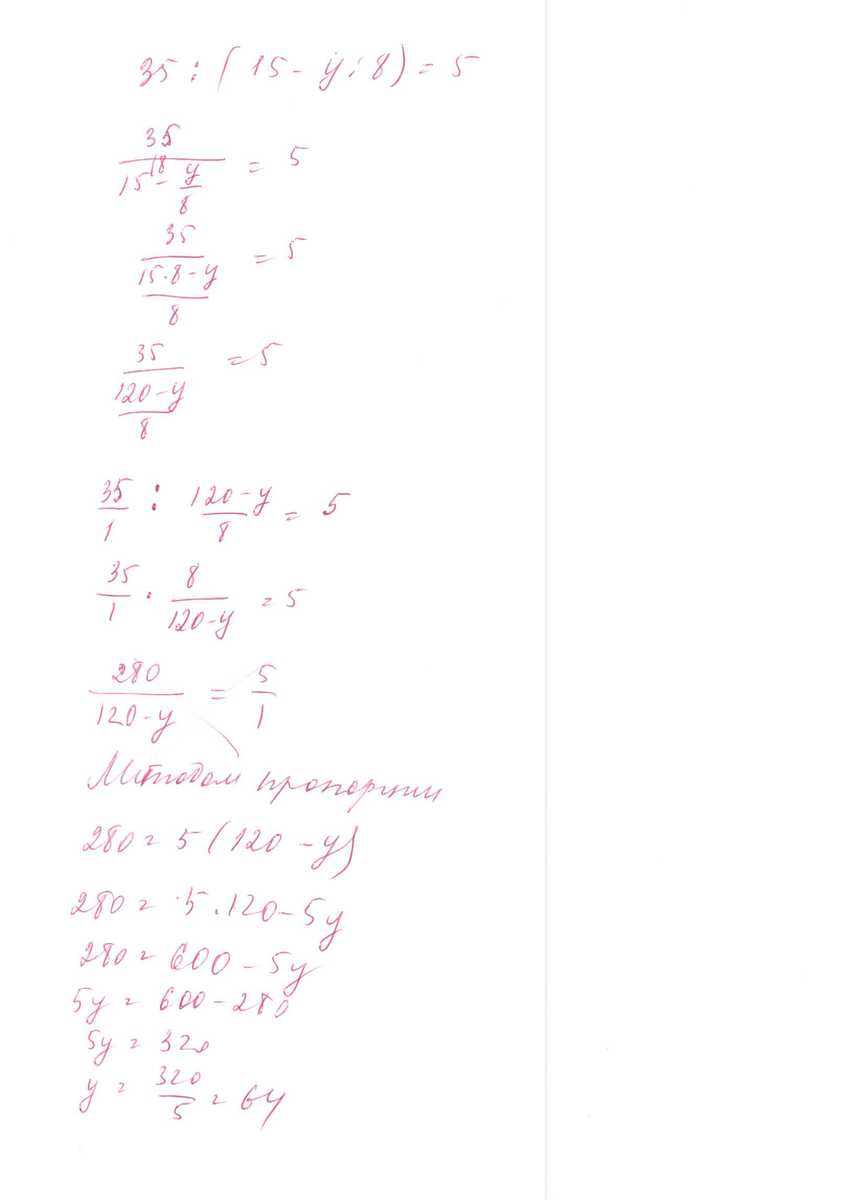 35 : (15 - y : 8) = 5
35
15 |8 - y = 5
8
35
15·8 - y = 5
8
35 = 5
120 - y
8
35 : 120 - y = 5
1 8
35 · 8 = 5
1 120 - y
280 = 5
120 - y 1
Методом пропорции
280 = 5 (120 - y)
280 = 5 · 120 - 5y
280 = 600 - 5y
5y = 600 - 280
5y = 320
y = 320 = 64
5